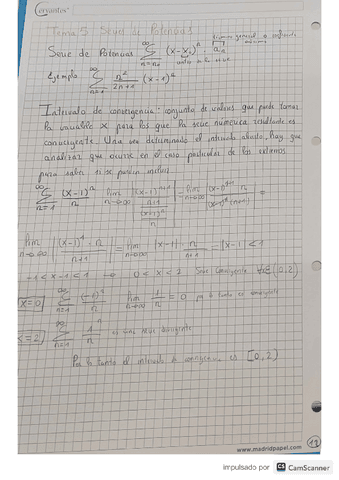 Cervantes
Tema 3 Series de Potencias
Serie de Potencias ∞ Σ n=n₀ (x-x₀)ⁿ · aₙ término general o
centro de la serie
Ejemplo ∞ Σ n=1 n²/(2n+1) (x-1)ⁿ
Intervalo de convergencia: conjunto de valores que puede tomar
la variable x para los que la serie numérica resultante es
convergente. Una vez determinado el intervalo abierto, hay que
analizar que ocurre en el caso particular de los extremos
para saber si se pueden incluir
∞ Σ n=1 (x-1)ⁿ/n lím n→∞ |((x-1)ⁿ⁺¹/(n+1))/((x-1)ⁿ/n)| = lím n→∞ |(x-1)ⁿ⁺¹ n/((x-1)ⁿ (n+1))| =
lím n→∞ |(x-1) · n/(n+1)| = lím n→∞ |x-1| · n/(n+1) = |x-1| < 1
-1 < x-1 < 1 → 0 < x < 2 Serie convergente ∀x∈(0,2)
x=0 ∞ Σ n=1 (-1)ⁿ/n lím n→∞ 1/n = 0 por lo tanto es convergente
x=2 ∞ Σ n=1 1ⁿ/n es una serie divergente
Por lo tanto el intervalo de convergencia es [0,2)
www.madridpapel.com
impulsado por CS CamScanner